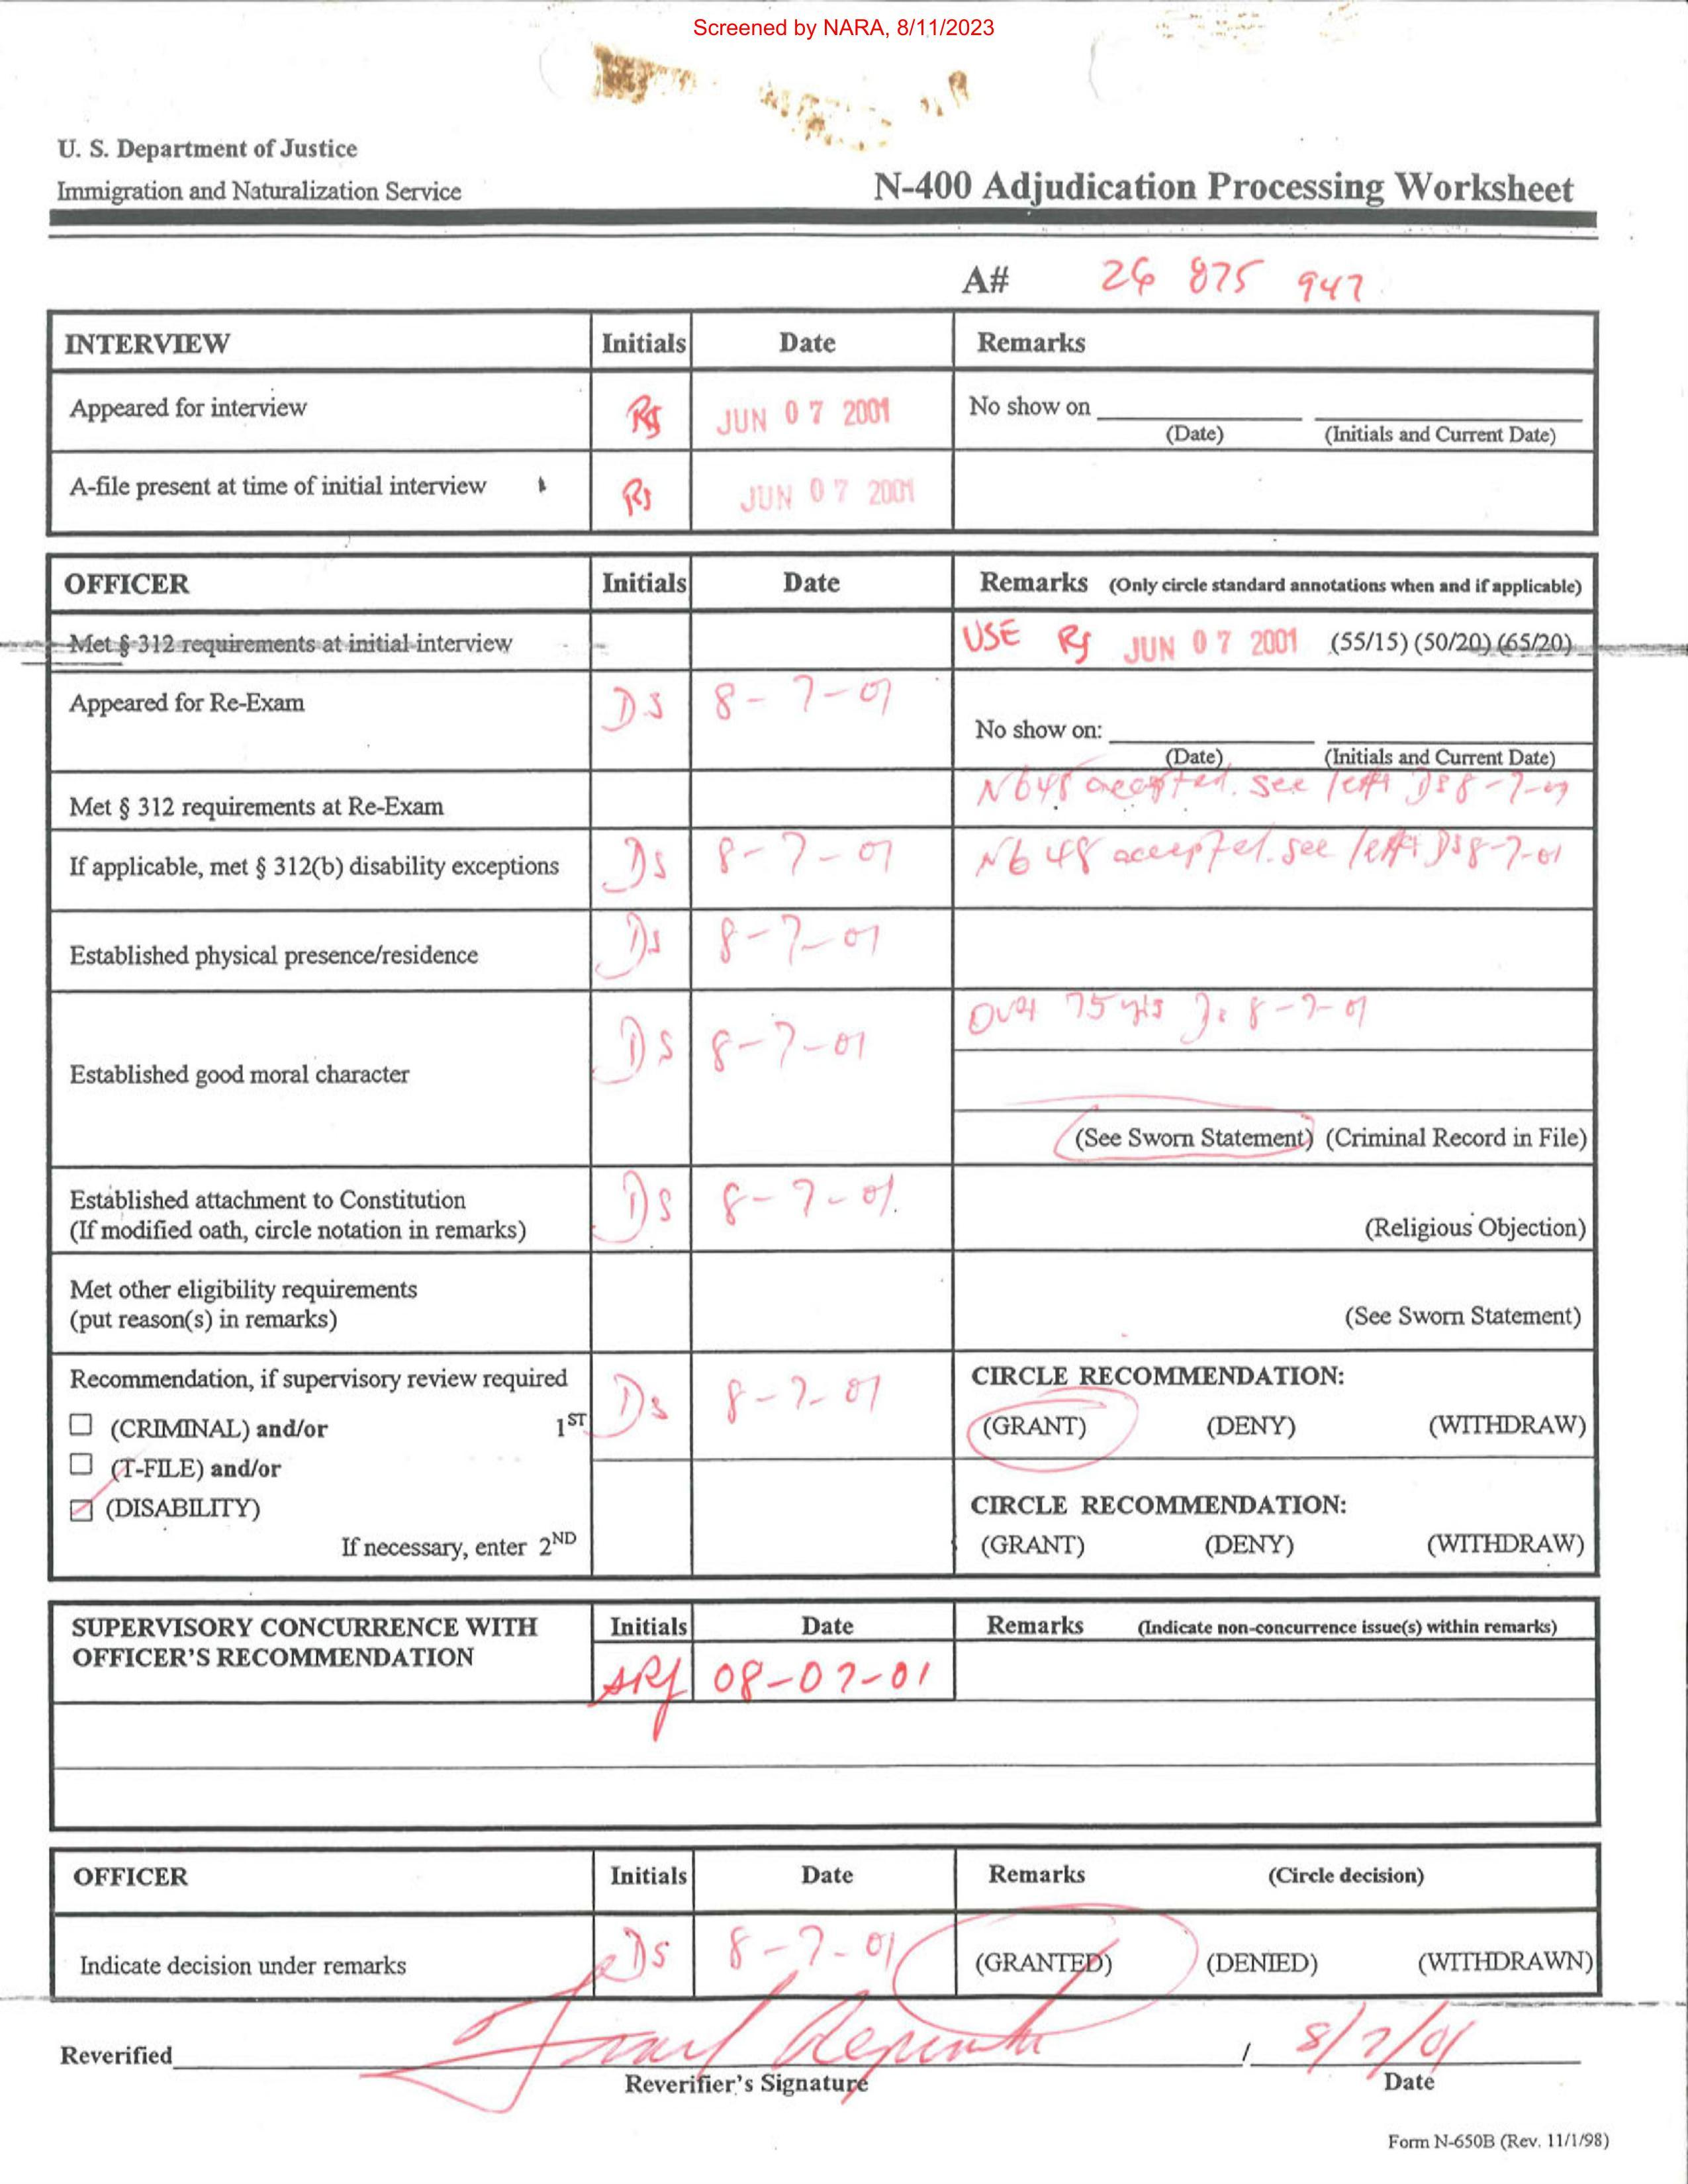 Screened by NARA, 8/11/2023
U. S. Department of Justice
Immigration and Naturalization Service
N-400 Adjudication Processing Worksheet
A# 26 875 947
INTERVIEW Initials Date Remarks
Appeared for interview RJ JUN 07 2001 No show on
(Date) (Initials and Current Date)
A-file present at time of initial interview RJ JUN 07 2001
OFFICER Initials Date Remarks (Only circle standard annotations when and if applicable)
Met § 312 requirements at initial interview USE RJ JUN 07 2001 (55/15) (50/20) (65/20)
Appeared for Re-Exam DS 8-7-01
No show on:
(Date) (Initials and Current Date)
Met § 312 requirements at Re-Exam N648 accepted. see letter DS 8-7-01
If applicable, met § 312(b) disability exceptions DS 8-7-01 N648 accepted. see letter DS 8-7-01
Established physical presence/residence DS 8-7-01
Established good moral character DS 8-7-01 Over 75 yrs DS 8-7-01
(See Sworn Statement) (Criminal Record in File)
Established attachment to Constitution DS 8-7-01
(If modified oath, circle notation in remarks) (Religious Objection)
Met other eligibility requirements
(put reason(s) in remarks) (See Sworn Statement)
Recommendation, if supervisory review required DS 8-7-01 CIRCLE RECOMMENDATION:
☐ (CRIMINAL) and/or 1ST (GRANT) (DENY) (WITHDRAW)
☐ (T-FILE) and/or
☑ (DISABILITY) CIRCLE RECOMMENDATION:
If necessary, enter 2ND (GRANT) (DENY) (WITHDRAW)
SUPERVISORY CONCURRENCE WITH Initials Date Remarks (Indicate non-concurrence issue(s) within remarks)
OFFICER'S RECOMMENDATION 08-07-01
OFFICER Initials Date Remarks (Circle decision)
Indicate decision under remarks DS 8-7-01 (GRANTED) (DENIED) (WITHDRAWN)
Reverified / 8/7/01
Reverifier's Signature Date
Form N-650B (Rev. 11/1/98)